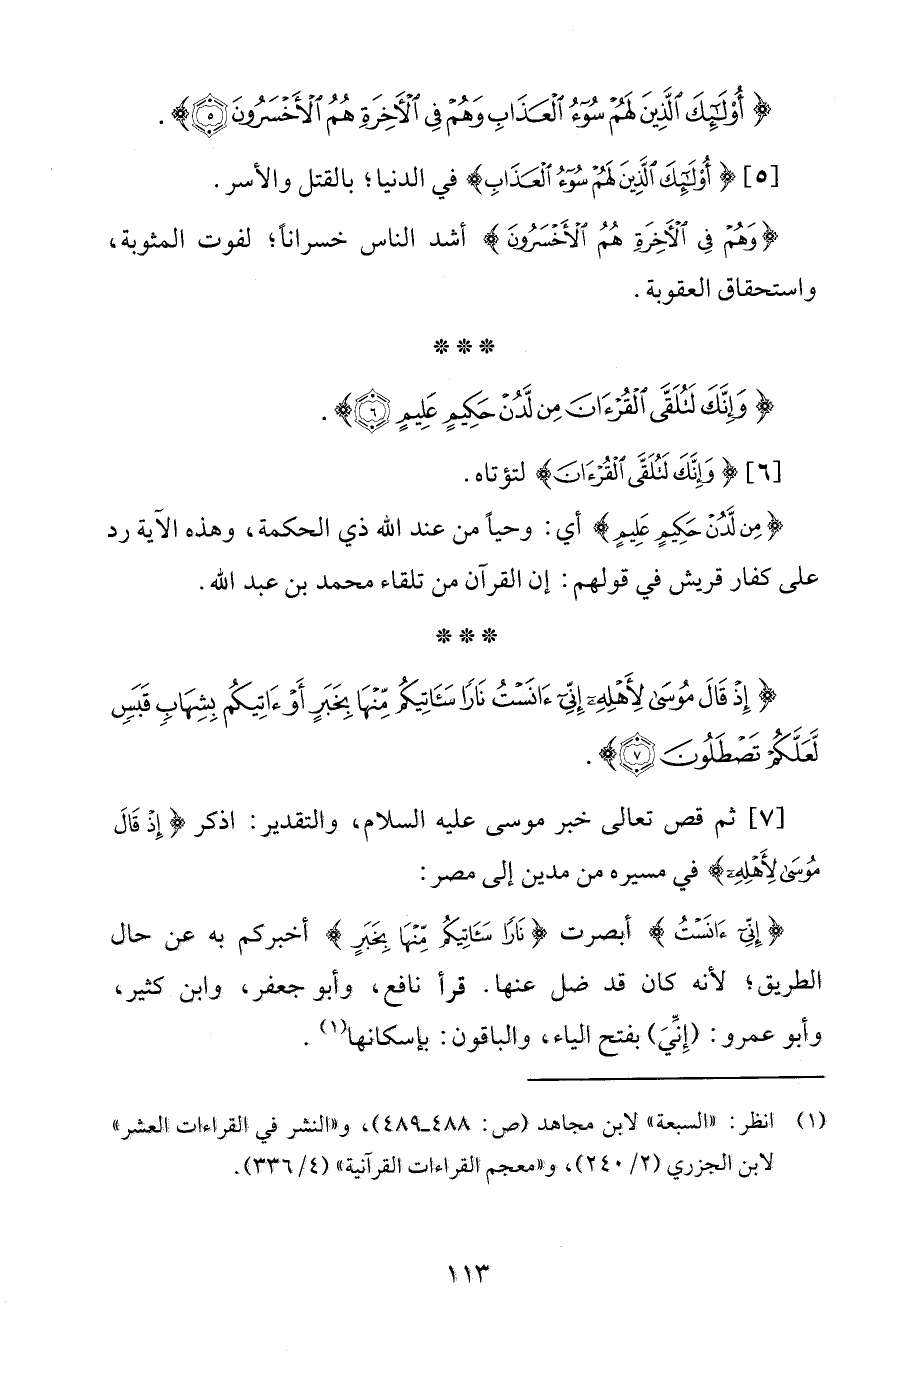 ﴿أُوْلَٰٓئِكَ ٱلَّذِينَ لَهُمْ سُوٓءُ ٱلْعَذَابِ وَهُمْ فِى ٱلْأَخِرَةِ هُمُ ٱلْأَخْسَرُونَ ۝٥﴾.
[٥] ﴿أُوْلَٰٓئِكَ ٱلَّذِينَ لَهُمْ سُوٓءُ ٱلْعَذَابِ﴾ في الدنيا؛ بالقتل والأسر.
﴿وَهُمْ فِى ٱلْأَخِرَةِ هُمُ ٱلْأَخْسَرُونَ﴾ أشد الناس خسراناً؛ لفوت المثوبة،
واستحقاق العقوبة.
* * *
﴿وَإِنَّكَ لَتُلَقَّى ٱلْقُرْءَانَ مِن لَّدُنْ حَكِيمٍ عَلِيمٍ ۝٦﴾.
[٦] ﴿وَإِنَّكَ لَتُلَقَّى ٱلْقُرْءَانَ﴾ لتؤتاه.
﴿مِن لَّدُنْ حَكِيمٍ عَلِيمٍ﴾ أي: وحياً من عند الله ذي الحكمة، وهذه الآية رد
على كفار قريش في قولهم: إن القرآن من تلقاء محمد بن عبد الله.
* * *
﴿إِذْ قَالَ مُوسَىٰ لِأَهْلِهِۦٓ إِنِّىٓ ءَانَسْتُ نَارًا سَـَٔاتِيكُم مِّنْهَا بِخَبَرٍ أَوْ ءَاتِيكُم بِشِهَابٍ قَبَسٍ
لَّعَلَّكُمْ تَصْطَلُونَ ۝٧﴾.
[٧] ثم قص تعالى خبر موسى عليه السلام، والتقدير: اذكر ﴿إِذْ قَالَ
مُوسَىٰ لِأَهْلِهِۦٓ﴾ في مسيره من مدين إلى مصر:
﴿إِنِّىٓ ءَانَسْتُ﴾ أبصرت ﴿نَارًا سَـَٔاتِيكُم مِّنْهَا بِخَبَرٍ﴾ أخبركم به عن حال
الطريق؛ لأنه كان قد ضل عنها. قرأ نافع، وأبو جعفر، وابن كثير،
وأبو عمرو: (إِنِّيَ) بفتح الياء، والباقون: بإسكانها(١).
(١) انظر: «السبعة» لابن مجاهد (ص: ٤٨٨ـ٤٨٩)، و«النشر في القراءات العشر»
لابن الجزري (٢/ ٢٤٠)، و«معجم القراءات القرآنية» (٤/ ٣٣٦).
١١٣